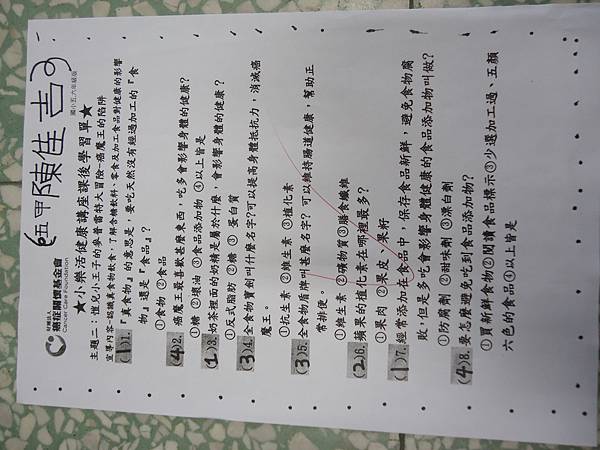 財團法人
癌症關懷基金會
Cancer Care Foundation
國小五、六年級版
五甲 陳佳吉
★小樂活健康講座課後學習單★
主題二：愷兒小王子的麥普雷特大冒險-癌魔王的陷阱
宣導內容-認識真食物飲食、了解含糖飲料、零食及加工食品對健康的影響
(1)1.『真食物』的意思是，要吃天然沒有經過加工的『食
物』還是『食品』?
①食物 ②食品
(4)2.癌魔王最喜歡甚麼東西，吃多會影響身體的健康?
①糖 ②壞油 ③食品添加物 ④以上皆是
(1)3.奶茶裡面的奶精是屬於什麼，會影響身體的健康?
①反式脂肪 ②糖 ③蛋白質
(3)4.全食物寶劍叫什麼名字?可以提高身體抵抗力，消滅癌
魔王。
①抗生素 ②維生素 ③植化素
(3)5.全食物盾牌叫甚麼名字? 可以維持腸道健康，幫助正
常排便。
①維生素 ②礦物質 ③膳食纖維
(2)6.蘋果的植化素在哪裡最多?
①果肉 ②果皮 ③果籽
(1)7.經常添加在食品中，保存食品新鮮，避免食物腐
敗。但是多吃會影響身體健康的食品添加物叫做?
①防腐劑 ②甜味劑 ③漂白劑
(4)8.要怎麼避免吃到食品添加物?
①買新鮮食物②閱讀食品標示③少選加工過、五顏
六色的食品④以上皆是